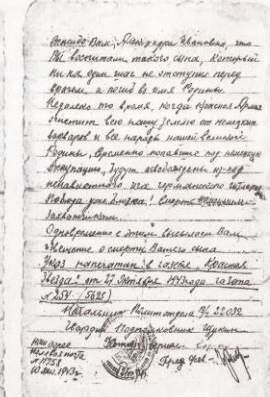 Спасибо Вам, Александра Ивановна, что
Вы воспитали такого сына, который
ни на один шаг не отступил перед
врагом, и погиб во имя Родины.
Недалеко то время, когда Красная Армия
очистит всю нашу землю от немецких
варваров и все народы нашей великой
Родины, временно попавшие под немецкую
оккупацию, будут освобождены из-под
ненавистного ига германского
Победа уже близка! Смерть немецким
захватчикам.
Одновременно с этим высылаем Вам
извещение о смерти Вашего сына
Указ напечатан в газете "Красная
Звезда" от 27 октября 1943 года газета
№ 254 (5625)
Начальник Политотдела п/п 22032
Гвардии Подполковник Щукин
Наш адрес
Полевая почта
№ 11758
1943г.